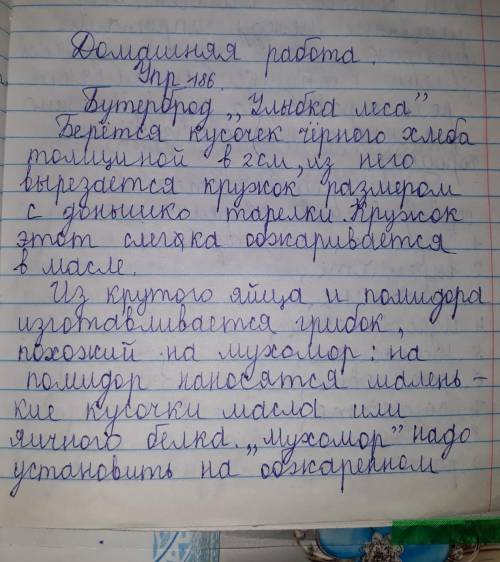 Домашняя работа.
Упр 186.
Бутерброд „Улыбка леса”
Берётся кусочек чёрного хлеба
толщиной в 2см, из него
вырезается кружок размером
с донышко тарелки. Кружок
этот слегка обжаривается
в масле.
Из крутого яйца и помидора
изготавливается грибок,
похожий на мухомор: на
помидор наносятся малень-
кие кусочки масла или
яичного белка. „Мухомор” надо
установить на обжаренном